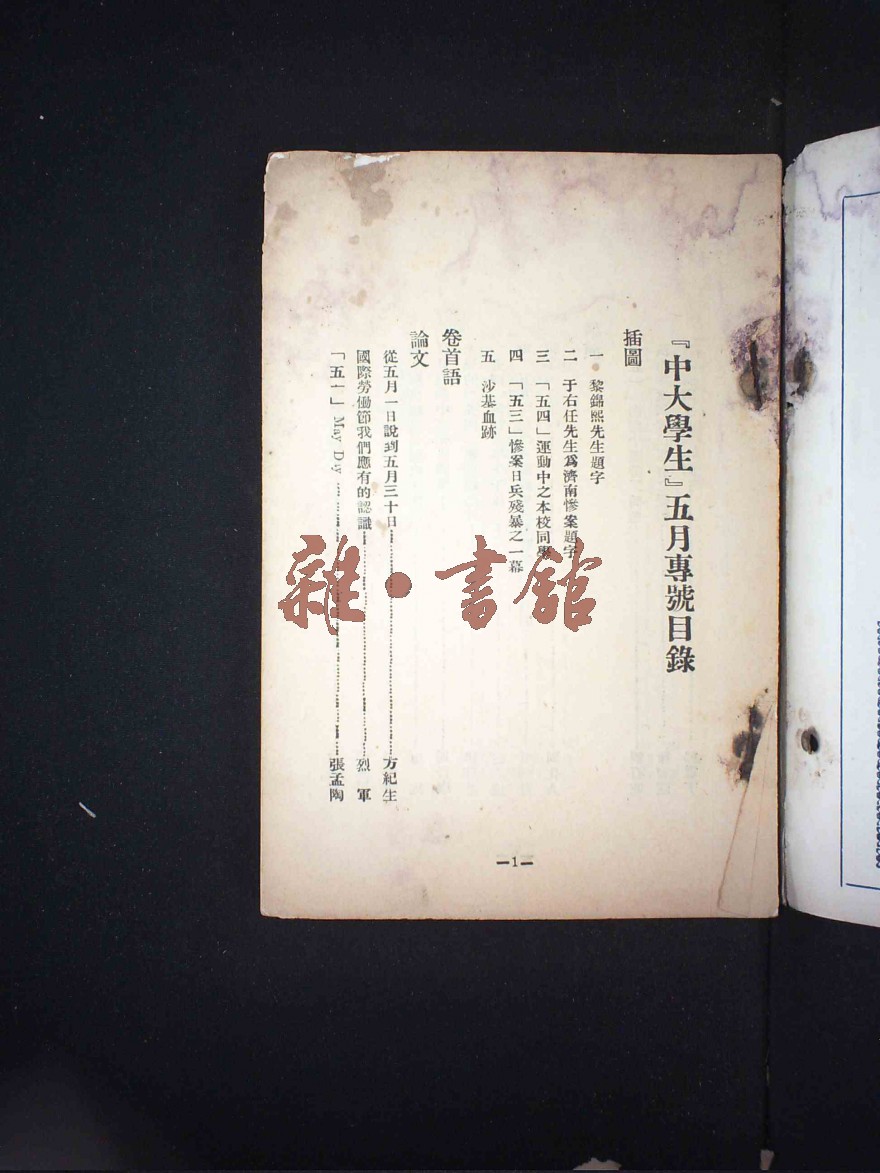 『中大學生』五月專號目錄
插圖
一 黎錦熙先生題字
二 于右任先生爲濟南慘案題字
三 「五四」運動中之本校同學
四 「五三」慘案日兵殘暴之一幕
五 沙基血跡
卷首語
論文
從五月一日說到五月三十日……方紀生
國際勞働節我們應有的認識……烈 軍
「五一」 May Day ……張孟陶
—1—
雜·書館